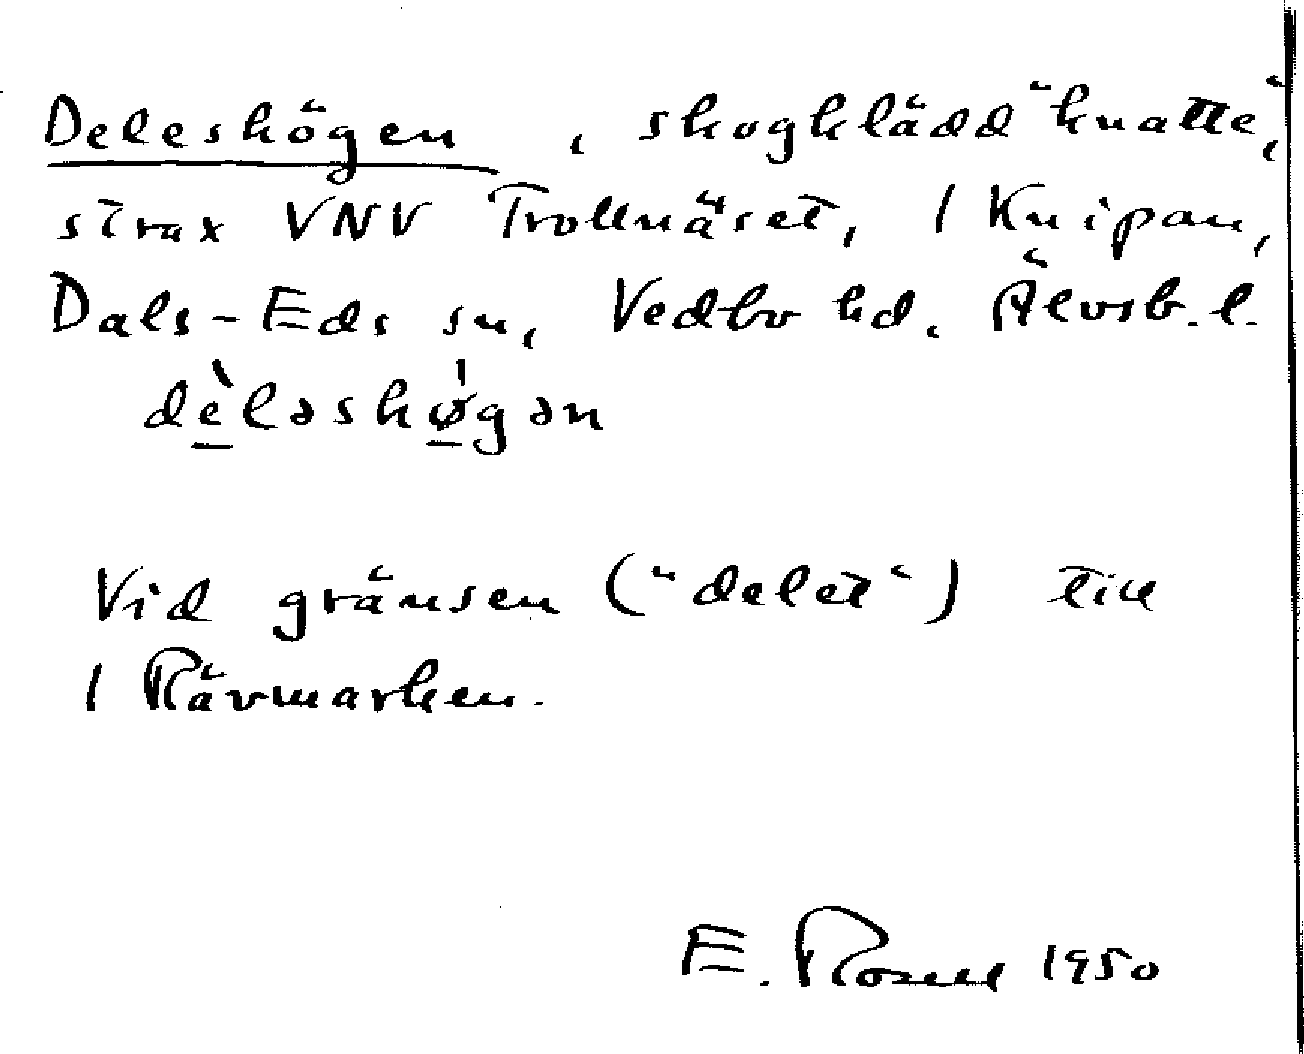 Deleshögen, skogklädd "knatte",
strax VNV Trollnäset, 1 Knipan,
Dals-Eds sn, Vedbo hd. Älvsb. l.
dèləshø̍gən
Vid gränsen ("delet") till
1 Rävmarken.
E. Rosell 1950